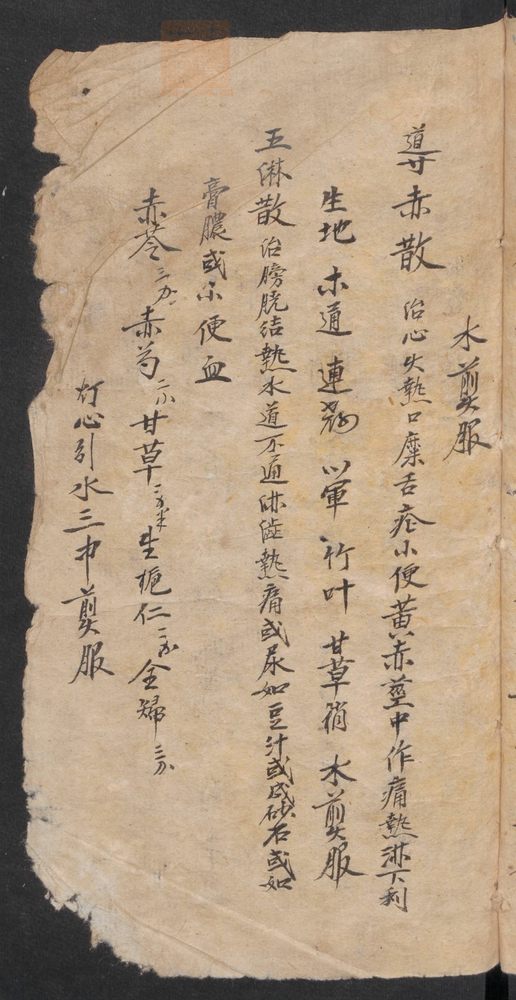 水煎服
導赤散 治心火熱口糜舌瘡小便黃赤莖中作痛熱淋不利
生地 木通 連翹 川軍 竹叶 甘草稍 水煎服
五淋散 治膀胱結熱水道不通淋澁熱痛或尿如豆汁或成砂石或如
膏膿或小便血
赤苓三分 赤芍二分 甘草二分半 生梔仁二分 全歸三分
灯心引水三中煎服